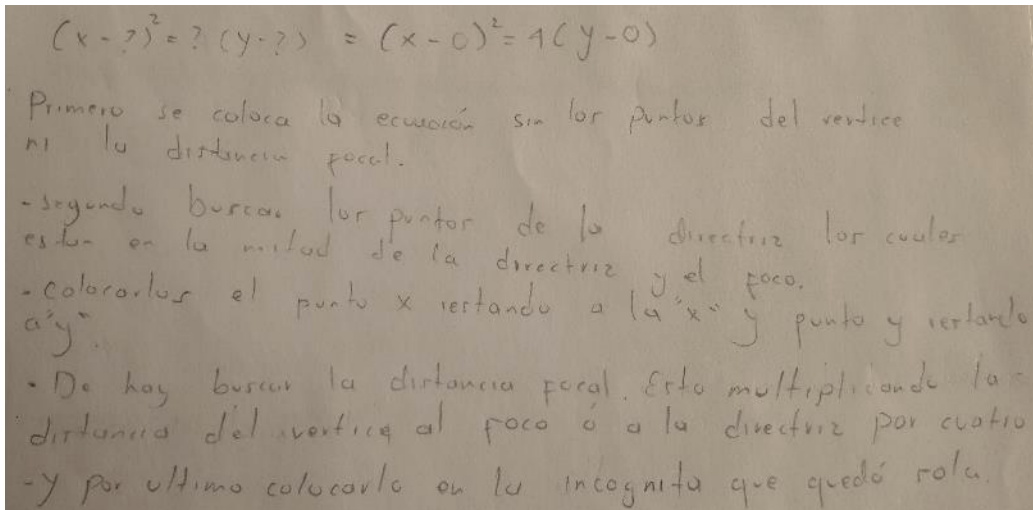 (x - ?)² = ? (y - ?) = (x - 0)² = 4(y - 0)
Primero se coloca la ecuación sin los puntos del vertice
ni la distancia focal.
- segundo buscar los puntos de la directriz los cuales
estan en la mitad de la directriz y el foco.
- Colocarlos el punto x restando a la "x" y punto y restando
a "y".
- De hay buscar la distancia focal. Esto multiplicando la
distancia del vertice al foco ó a la directriz por cuatro
- y por ultimo colocarlo en la incognita que quedó sola.